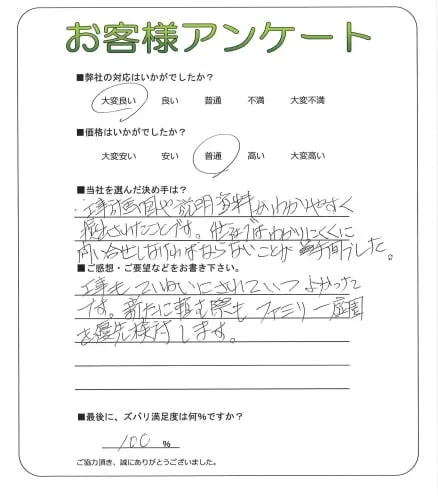 お客様アンケート
■弊社の対応はいかがでしたか？
大変良い 良い 普通 不満 大変不満
■価格はいかがでしたか？
大変安い 安い 普通 高い 大変高い
■当社を選んだ決め手は？
工事計画や説明資料がわかりやすく
提出されたことです。他社ではわかりにくくに
問い合せしなければならないことが 手間でした。
■ご感想・ご要望などをお書き下さい。
工事も ていねいにされていて よかった
です。新たに頼む際も ファミリー庭園
を優先検討します。
■最後に、ズバリ満足度は何％ですか？
100 ％
ご協力頂き、誠にありがとうございました。